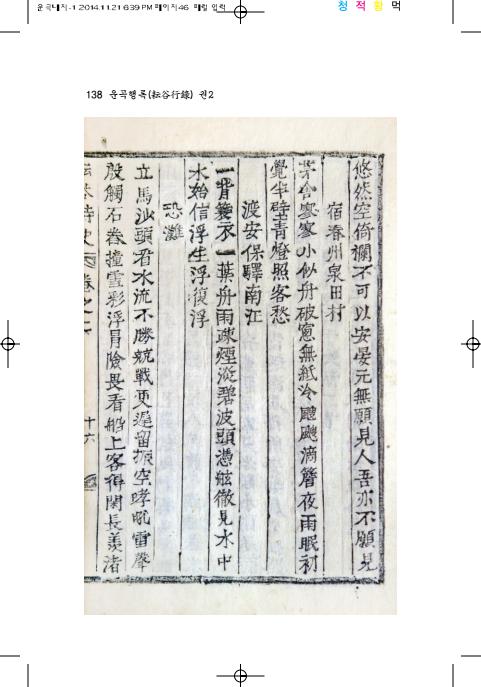 운곡내지-1 2014.11.21 6:39 PM 페이지46 매킬 입력
청 적 황 먹
138 운곡행록(耘谷行錄) 권2
悠然空倚欄不可以安晏元無願見人吾亦不願見
宿春州泉田村
茅舍寥寥小似舟破窓無紙冷颼颼滴簷夜雨眠初
覺半壁靑燈照客愁
渡安保驛南江
一背簑衣一葉舟雨疎煙淡碧波頭憑舷徹見水中
水始信浮生浮復浮
恐灘
立馬沙頭看水流不勝兢戰更遲留振空哮吼雷聲
殷觸石奔撞雪彩浮冒險畏看船上客得閑長羨渚
耘谷詩史 卷之二 十六